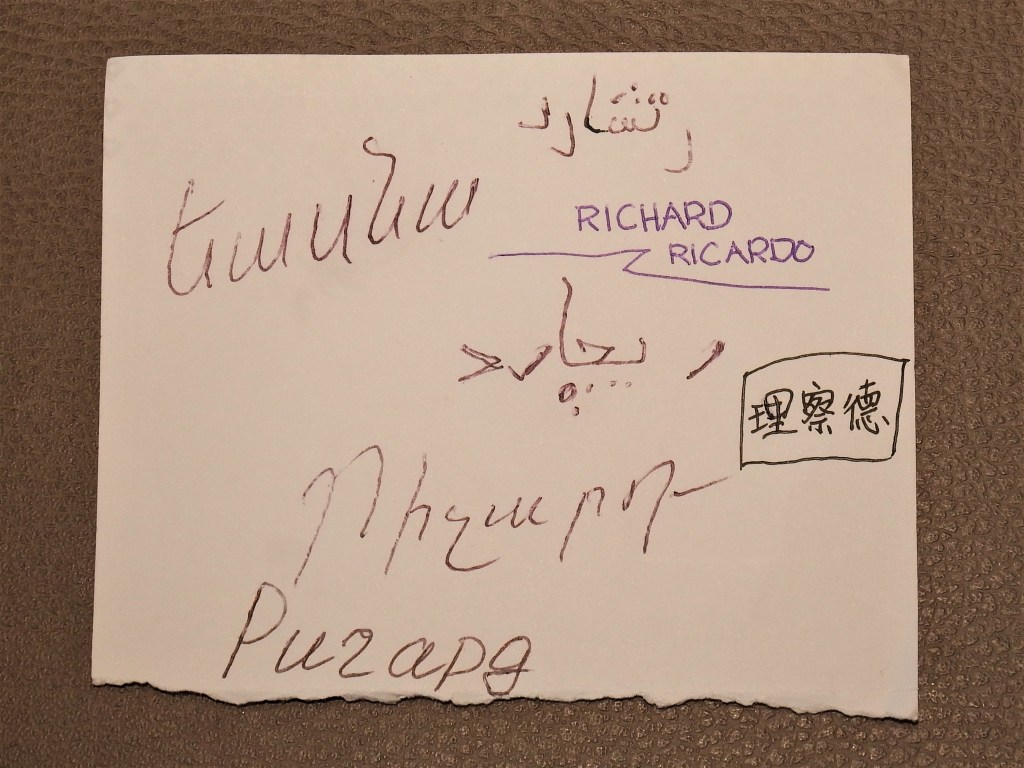 رتشارد
եասնա
RICHARD
RICARDO
ریچارد
理察德
Ռիչարդ
Ричард